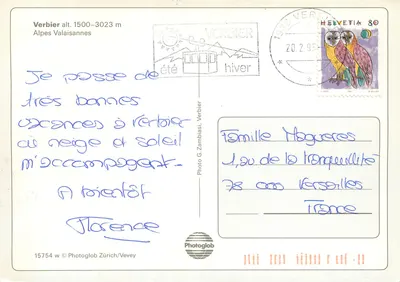 Verbier alt. 1500-3023 m
Alpes Valaisannes
VERBIER
été hiver
20.2.95
HELVETIA 80
Je passe de
très bonnes
vacances à Verbier
où neige et soleil
m'accompagnent.
A bientôt
Florence
Photo G. Zambiasi, Verbier
Famille Nogueres
1, av de la tranquillité
78 000 Versailles
France
15754 w © Photoglob Zürich/Vevey
Photoglob